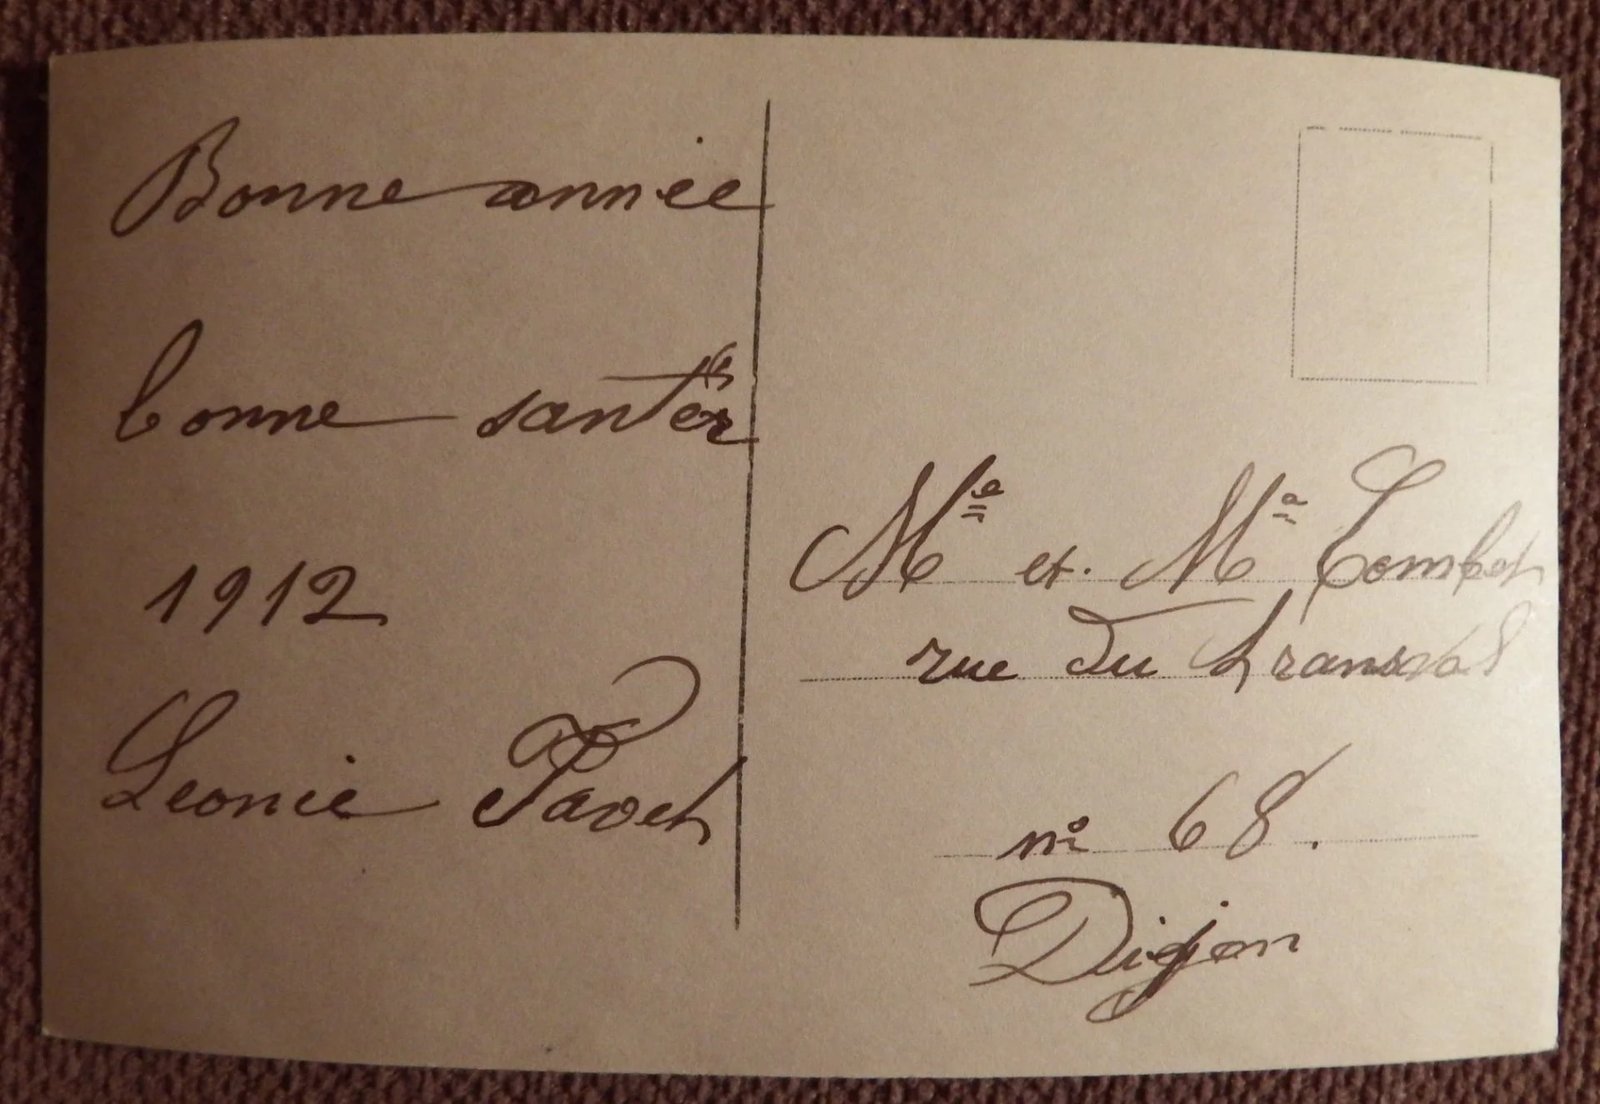 Bonne année
bonne santér
1912
Leonie Pavet
Me et. Ma Combet
rue du transval
no 68.
Dijon